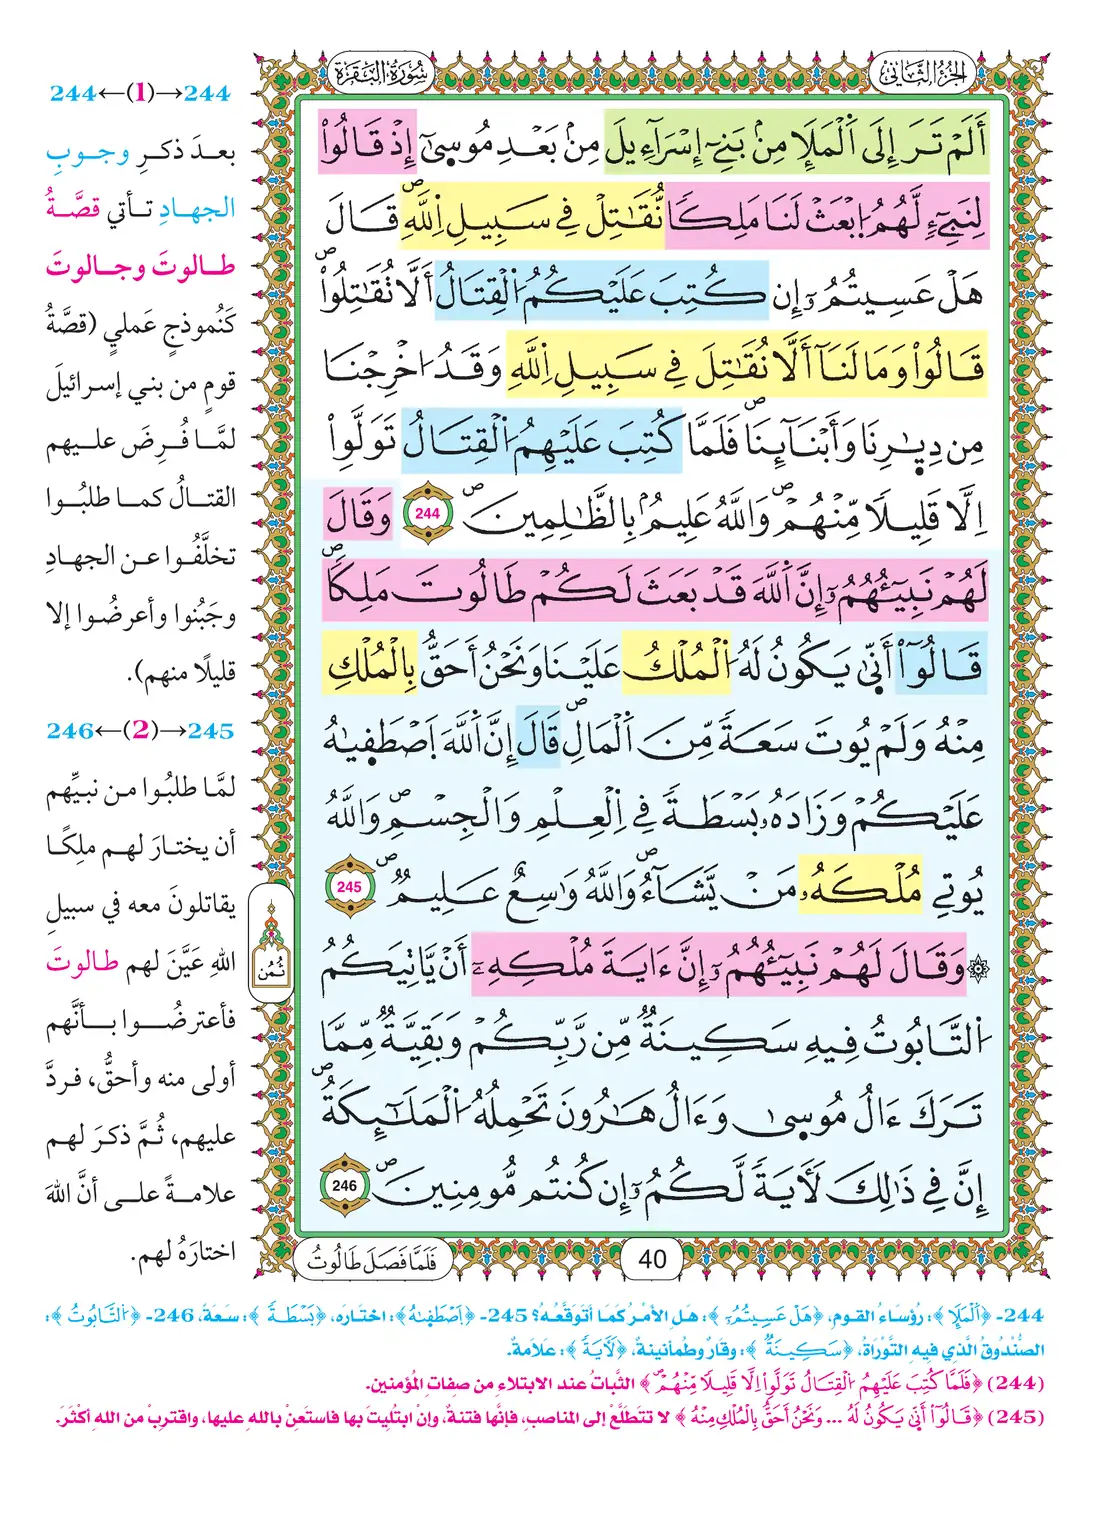 الجزء الثاني
سورة البقرة
أَلَمْ تَرَ إِلَى اَلْمَلَإِ مِنۢ بَنِےٓ إِسْرَآءِيلَ مِنۢ بَعْدِ مُوسۭيٰٓ إِذْ قَالُواْ
لِنَبِےٓءٍ لَّهُمُ اُ۪بْعَثْ لَنَا مَلِكاٗ نُّقَٰتِلْ فِے سَبِيلِ اِ۬للَّهِۖ قَالَ
هَلْ عَسِيتُمُۥٓ إِن كُتِبَ عَلَيْكُمُ اُ۬لْقِتَالُ أَلَّا تُقَٰتِلُواْۖ
قَالُواْ وَمَا لَنَآ أَلَّا نُقَٰتِلَ فِے سَبِيلِ اِ۬للَّهِ وَقَدُ ا۟خْرِجْنَا
مِن دِيٰ۪رِنَا وَأَبْنَآئِنَاۖ فَلَمَّا كُتِبَ عَلَيْهِمُ اُ۬لْقِتَالُ تَوَلَّوِاْ
اِلَّا قَلِيلاٗ مِّنْهُمْۖ وَاللَّهُ عَلِيمُۢ بِالظَّٰلِمِينَۖ 244 وَقَالَ
لَهُمْ نَبِيٓـُٔهُمُۥٓ إِنَّ اَ۬للَّهَ قَدْ بَعَثَ لَكُمْ طَالُوتَ مَلِكاٗۖ
قَالُوٓاْ أَنّ۪يٰ يَكُونُ لَهُ اُ۬لْمُلْكُ عَلَيْنَا وَنَحْنُ أَحَقُّ بِالْمُلْكِ
مِنْهُ وَلَمْ يُوتَ سَعَةٗ مِّنَ اَ۬لْمَالِۖ قَالَ إِنَّ اَ۬للَّهَ اَ۪صْطَف۪يٰهُ
عَلَيْكُمْ وَزَادَهُۥ بَسْطَةٗ فِے اِ۬لْعِلْمِ وَالْجِسْمِۖ وَاللَّهُ
يُوتِے مُلْكَهُۥ مَنْ يَّشَآءُۖ وَاللَّهُ وَٰسِعٌ عَلِيمٞۖ 245
۞ وَقَالَ لَهُمْ نَبِيٓـُٔهُمُۥٓ إِنَّ ءَايَةَ مُلْكِهِۦٓ أَنْ يَّاتِيَكُمُ
اُ۬لتَّابُوتُ فِيهِ سَكِينَةٞ مِّن رَّبِّكُمْ وَبَقِيَّةٞ مِّمَّا
تَرَكَ ءَالُ مُوس۪يٰ وَءَالُ هَٰرُونَ تَحْمِلُهُ اُ۬لْمَلَٰٓئِكَةُۖ
إِنَّ فِے ذَٰلِكَ لَأٓيَةٗ لَّكُمُۥٓ إِن كُنتُم مُّومِنِينَۖ 246
40
فَلَمَّا فَصَلَ طَالُوتُ
ثُمُن
244←(1)→244
بعدَ ذكرِ وجوبِ
الجهادِ تأتي قصَّةُ
طالوتَ وجالوتَ
كَنُموذجٍ عَملي (قصَّةُ
قومٍ من بني إسرائيلَ
لمَّا فُرِضَ عليهم
القتالُ كما طلبُوا
تخلَّفُوا عن الجهادِ
وجَبُنوا وأعرضُوا إلا
قليلًا منهم).
246←(2)→245
لمَّا طلبُوا من نبيِّهم
أن يختارَ لهم ملِكًا
يقاتلونَ معه في سبيلِ
اللهِ عَيَّنَ لهم طالوتَ
فأعترضُوا بأنَّهم
أولى منه وأحقُّ، فردَّ
عليهم، ثُمَّ ذكرَ لهم
علامةً على أنَّ اللهَ
اختارَهُ لهم.
244- ﴿اَلْمَلَإِ﴾: رُؤسَاءُ القوم، ﴿هَلْ عَسِيتُمُۥٓ﴾: هَل الأمْرُ كَمَا أتوَقَّعُهُ؟ 245- ﴿اِصْطَفِيٰهُ﴾: اختَارَه، ﴿بَسْطَةٗ﴾: سَعَةً، 246- ﴿اَ۬لتَّابُوتُ﴾:
الصُّنْدُوقُ الَّذي فيهِ التَّوْرَاةُ، ﴿سَكِينَةٞ﴾: وقَارٌ وطُمأنينةٌ، ﴿لَأٓيَةٗ﴾: عَلامَةً.
(244) ﴿فَلَمَّا كُتِبَ عَلَيْهِمُ اُ۬لْقِتَالُ تَوَلَّوِاْ اِلَّا قَلِيلاٗ مِّنْهُمْۖ﴾ الثَّباتُ عند الابتلاءِ من صفاتِ المُؤمنين.
(245) ﴿قَالُوٓاْ أَنّ۪يٰ يَكُونُ لَهُ ... وَنَحْنُ أَحَقُّ بِالْمُلْكِ مِنْهُ﴾ لا تتَطلَّعْ إلى المناصبِ، فإنَّها فتنةٌ، وإنْ ابتُليتَ بها فاستَعنْ بالله عليها، واقتربْ من اللهِ أكثَرَ.